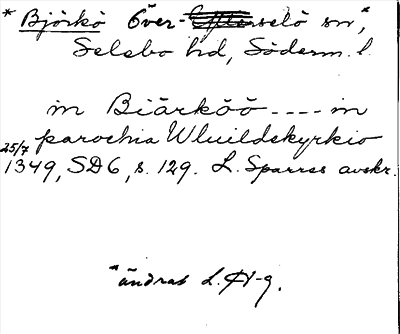 * Björkö Över-selö sn*,
Selebo hd, Söderm. l.
in Biärköö ---- in
parochia Wluildskyrkio
25/7
1349, SD6, s. 129. L. Sparres avskr.
* ändrat L. H-g.